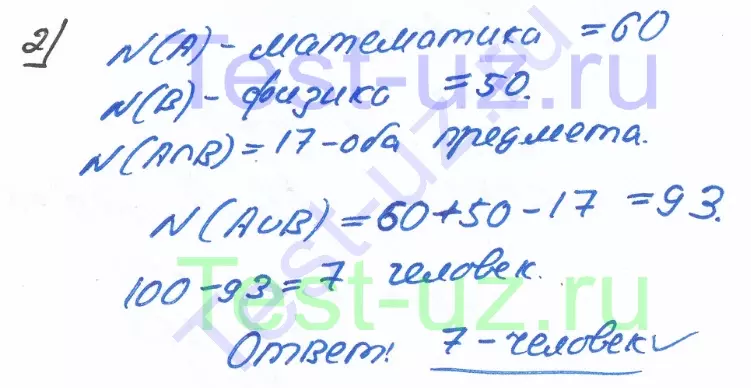 2) N(A) - математика = 60
N(B) - физика = 50.
N(A∩B) = 17 - оба предмета.
N(A∪B) = 60 + 50 - 17 = 93.
100 - 93 = 7 человек.
Ответ: 7 - человек
Test-uz.ru
Test-uz.ru
Test-uz.ru